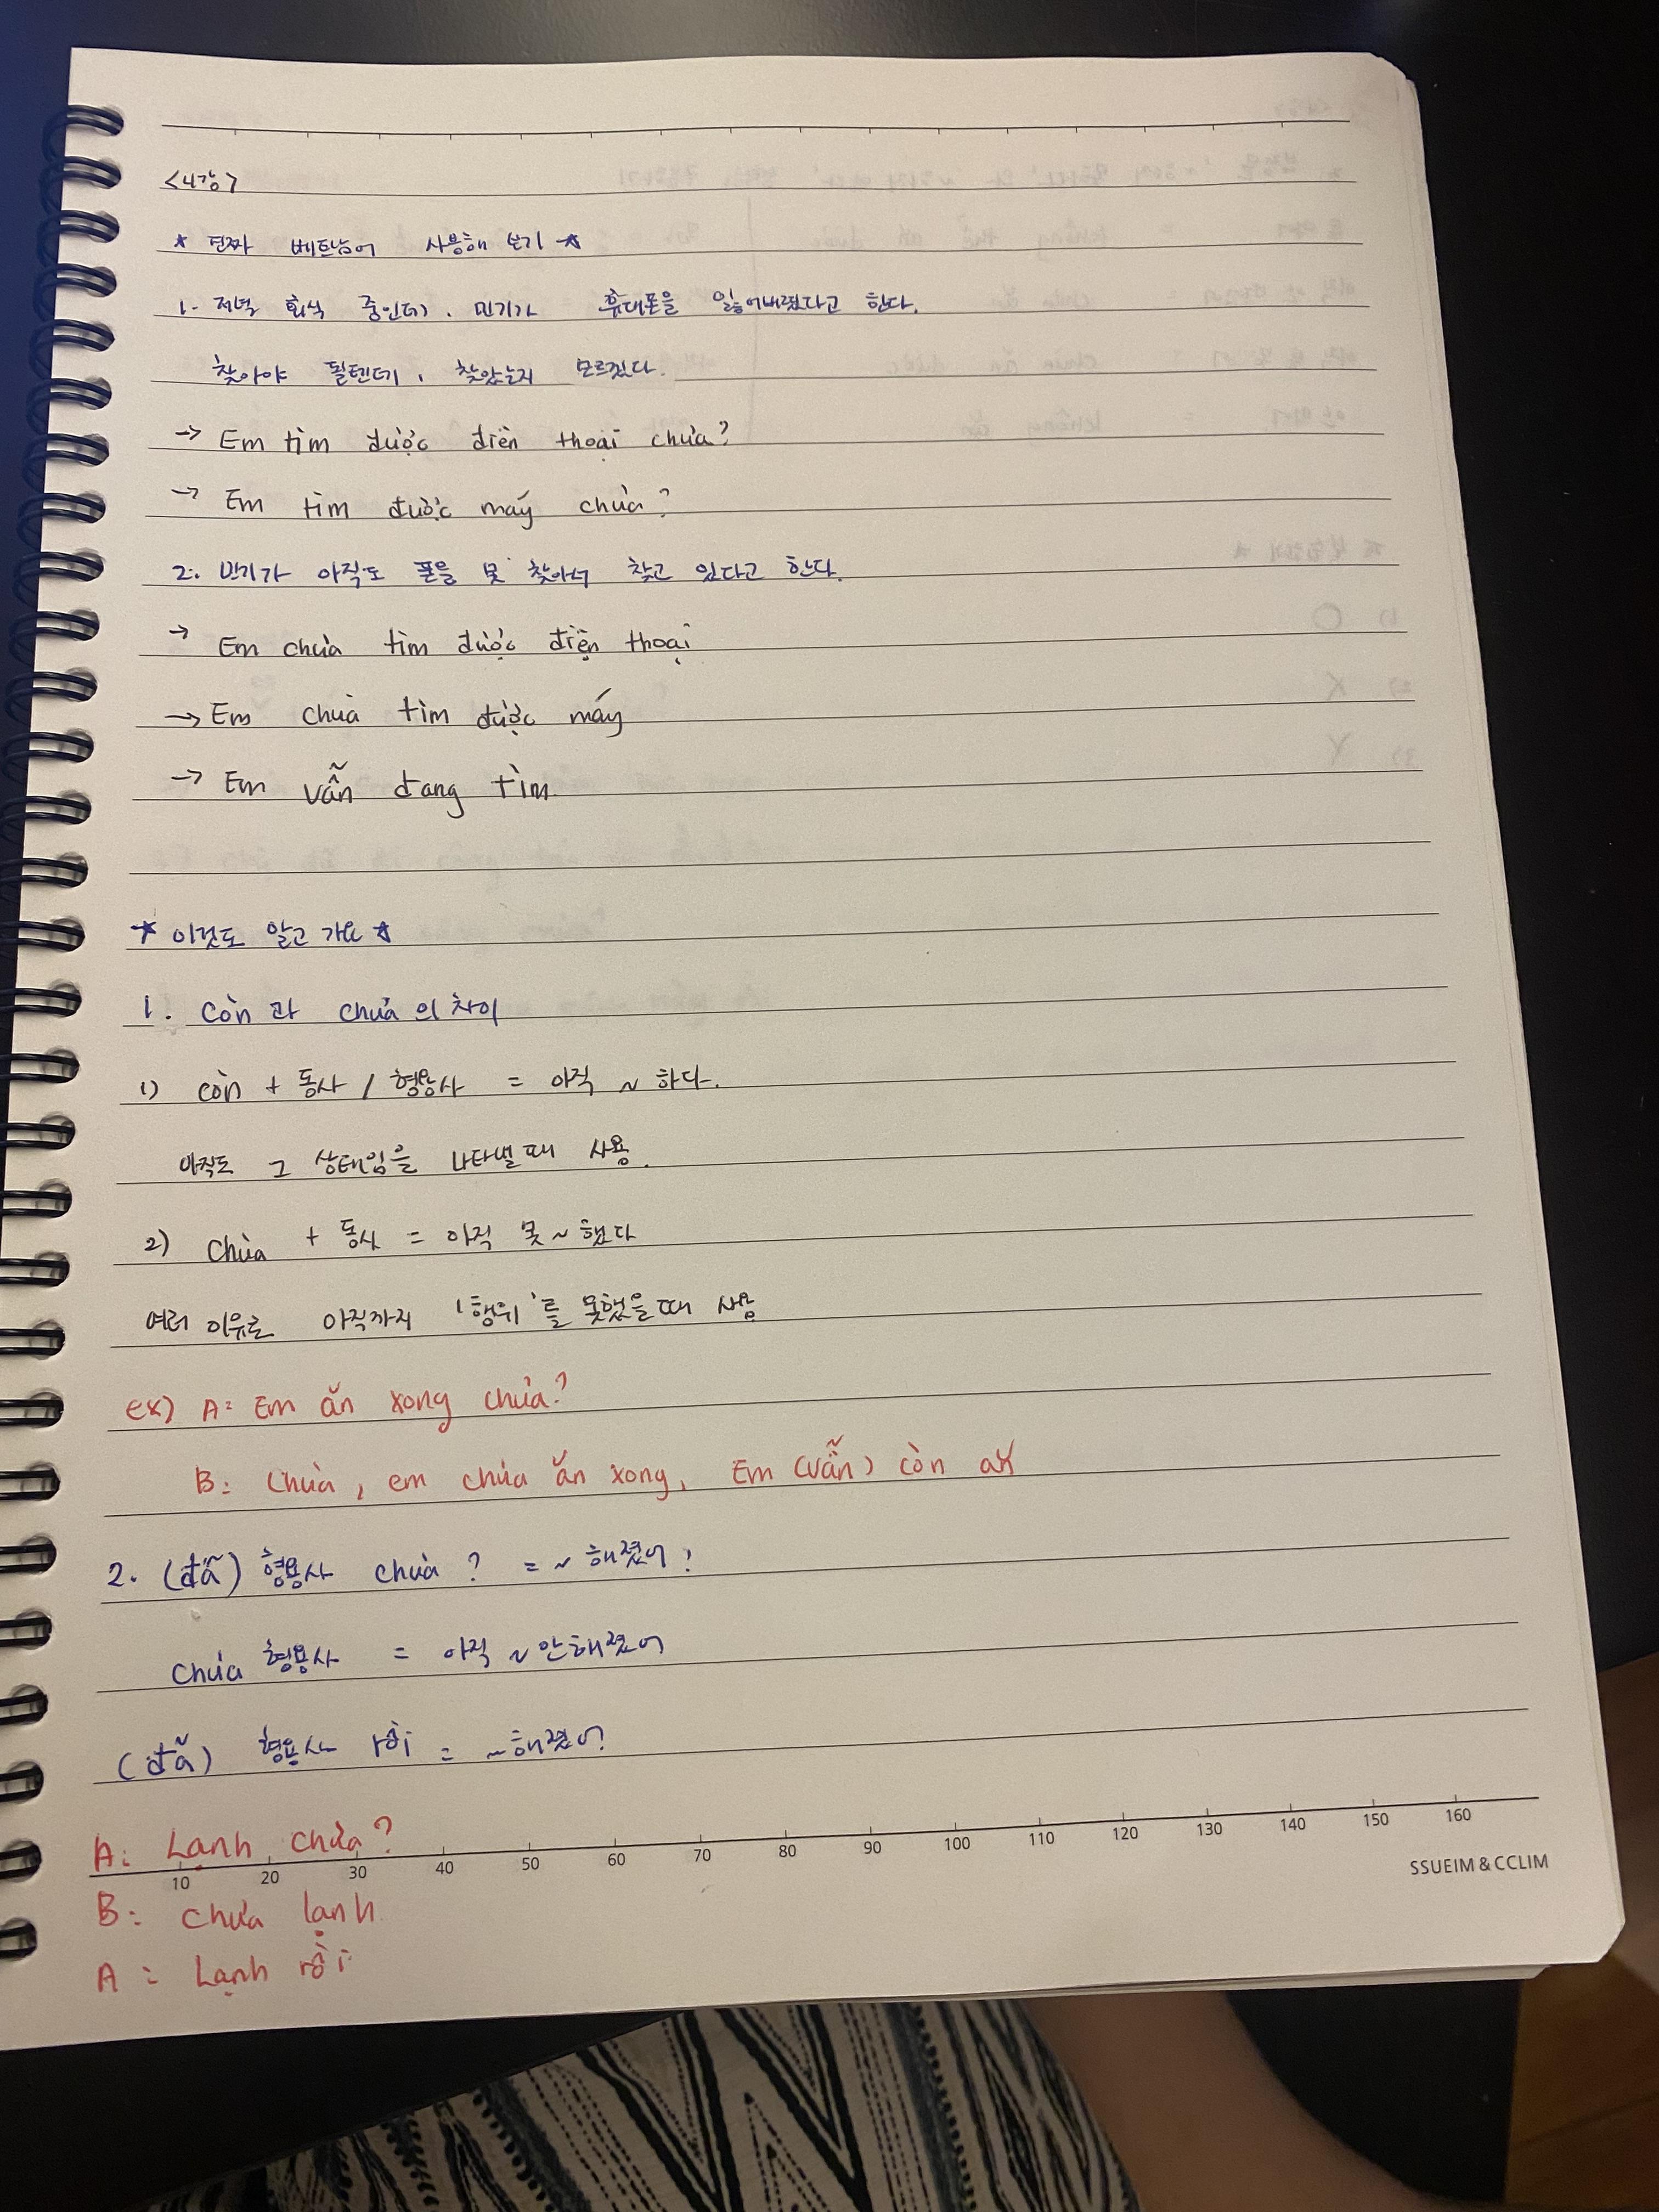 <4강>
* 진짜 베트남어 사용해 보기 *
1. 저녁 회식 중인데, 민기가 휴대폰을 잃어버렸다고 한다.
찾아야 될텐데, 찾았는지 모르겠다.
→ Em tìm được điện thoại chưa?
→ Em tìm được máy chưa?
2. 민기가 아직도 폰을 못 찾아서 찾고 있다고 한다.
→ Em chưa tìm được điện thoại
→ Em chưa tìm được máy
→ Em vẫn đang tìm
* 이것도 알고 가요 *
1. còn 과 chưa 의 차이
1) còn + 동사 / 형용사 = 아직 ~ 하다.
아직도 그 상태임을 나타낼 때 사용.
2) chưa + 동사 = 아직 못 ~ 했다
여러 이유로 아직까지 '행위'를 못했을 때 사용
ex) A: Em ăn xong chưa?
B: Chưa, em chưa ăn xong, Em (vẫn) còn
2. (đã) 형용사 chưa ? = ~ 해졌어?
chưa 형용사 = 아직 ~ 안해졌어
(đã) 형용사 rồi = ~해졌어
A: Lạnh chưa?
10 20 30 40 50 60 70 80 90 100 110 120 130 140 150 160
SSUEIM & CCLIM
B: chưa lạnh
A: Lạnh rồi